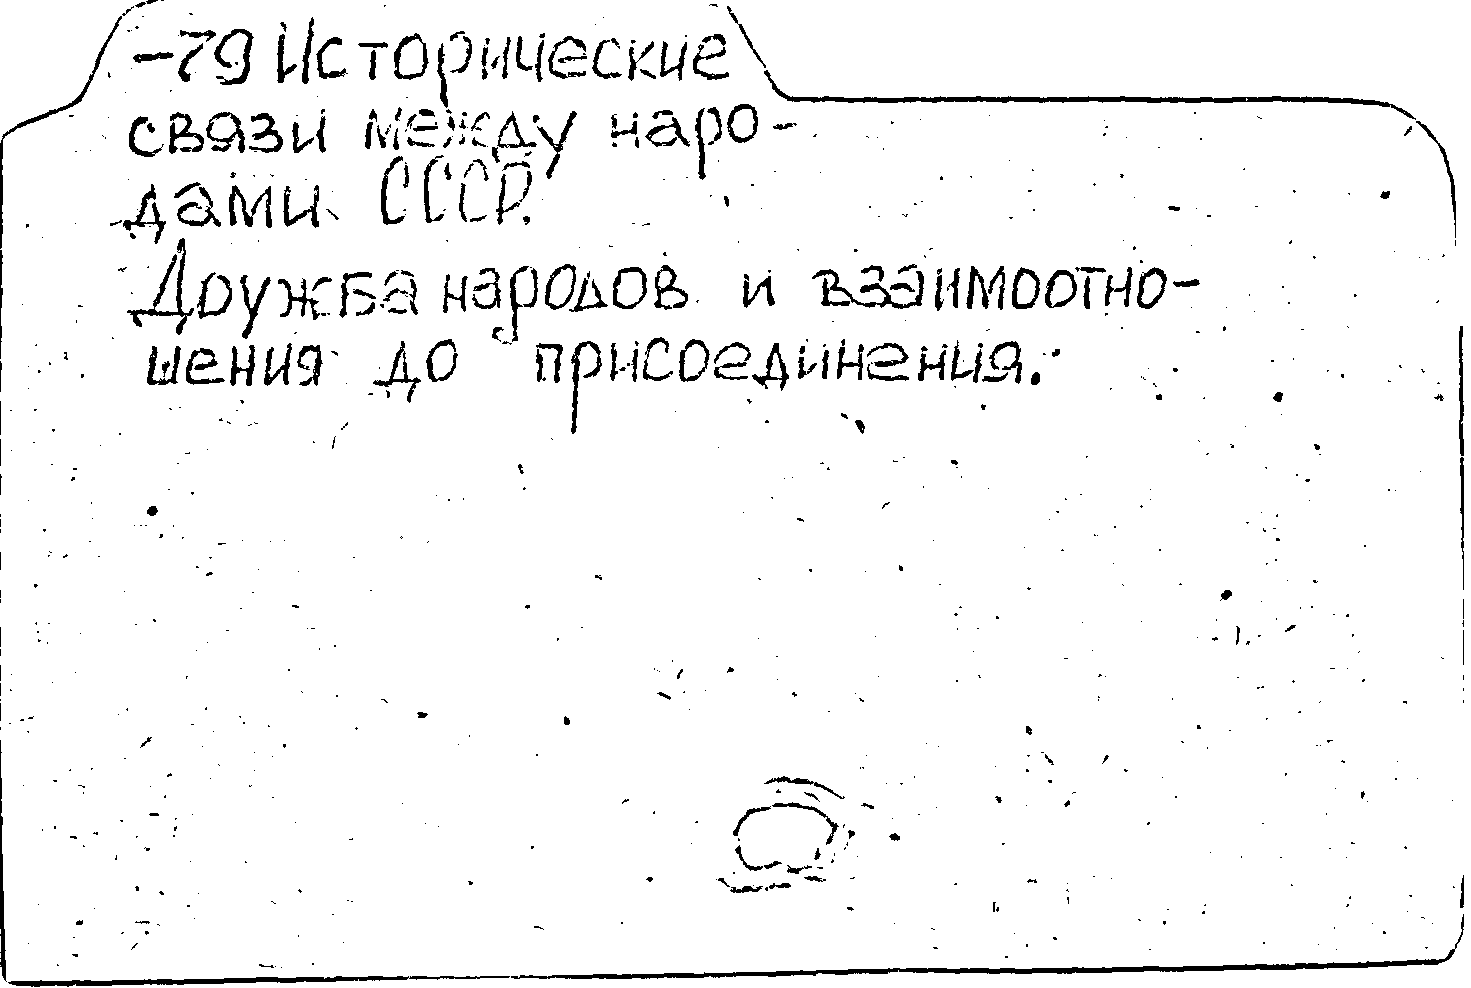 -79 Исторические
связи между наро-
дами СССР.
Дружба народов и взаимоотно-
шения до присоединения.